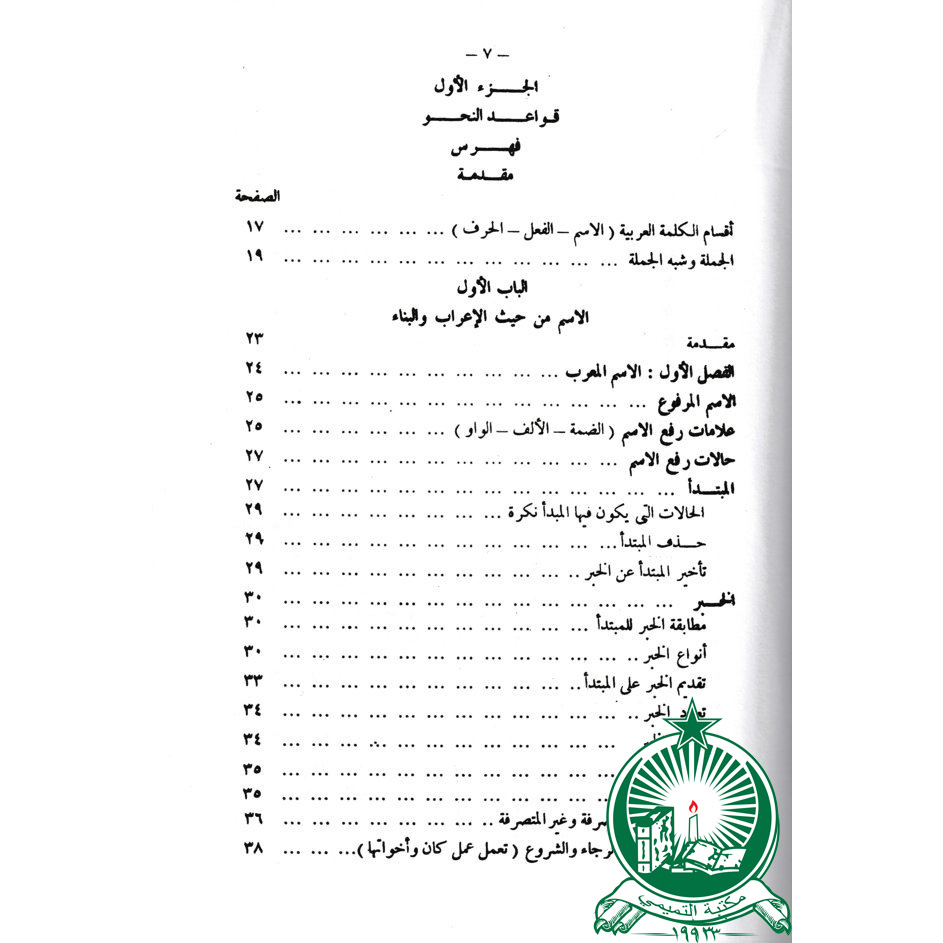 — ٧ —
الجــزء الأول
قواعد النحو
فهرس
مقدمة
الصفحة
أقسام الكلمة العربية ( الاسم – الفعل – الحرف ) ... ... ... ... ... ... ١٧
الجملة وشبه الجملة ... ... ... ... ... ... ... ... ... ... ... ... ١٩
الباب الأول
الاسم من حيث الإعراب والبناء
مقدمة ٢٣
الفصل الأول : الاسم المعرب ... ... ... ... ... ... ... ... ... ... ٢٤
الاسم المرفوع ... ... ... ... ... ... ... ... ... ... ... ... ... ٢٥
علامات رفع الاسم ( الضمة – الألف – الواو ) ... ... ... ... ... ... ٢٥
حالات رفع الاسم ... ... ... ... ... ... ... ... ... ... ... ... ٢٧
المبتدأ ... ... ... ... ... ... ... ... ... ... ... ... ... ... ٢٧
الحالات التى يكون فيها المبدأ نكرة ... ... ... ... ... ... ... ... ٢٩
حذف المبتدأ ... ... ... ... ... ... ... ... ... ... ... ... ٢٩
تأخير المبتدأ عن الخبر .. ... ... ... ... ... ... ... ... ... ... ٢٩
الخبر ... ... ... ... ... ... ... ... ... ... ... ... ... ... ٣٠
مطابقة الخبر للمبتدأ ... ... ... ... ... ... ... ... ... ... ... ٣٠
أنواع الخبر .. ... ... ... ... ... ... ... ... ... ... ... ... ٣٠
تقديم الخبر على المبتدأ .. ... ... ... ... ... ... ... ... ... ... ٣٣
الخبر .. ... ... ... ... ... ... ... ... ... ... ... ... ٣٤
... ... ... ... ... ... ... ... ... ... ... ... ٣٤
... ... ... ... ... ... ... ... ... ... ... ... ٣٥
... ... ... ... ... ... ... ... ... ... ... ... ٣٥
وغير المتصرفة .. ... ... ... ... ... ... ... ٣٦
والشروع ( تعمل عمل كان وأخواتها ) ... ... ... ٣٨
مكتبة التميمي
١٩٩٣